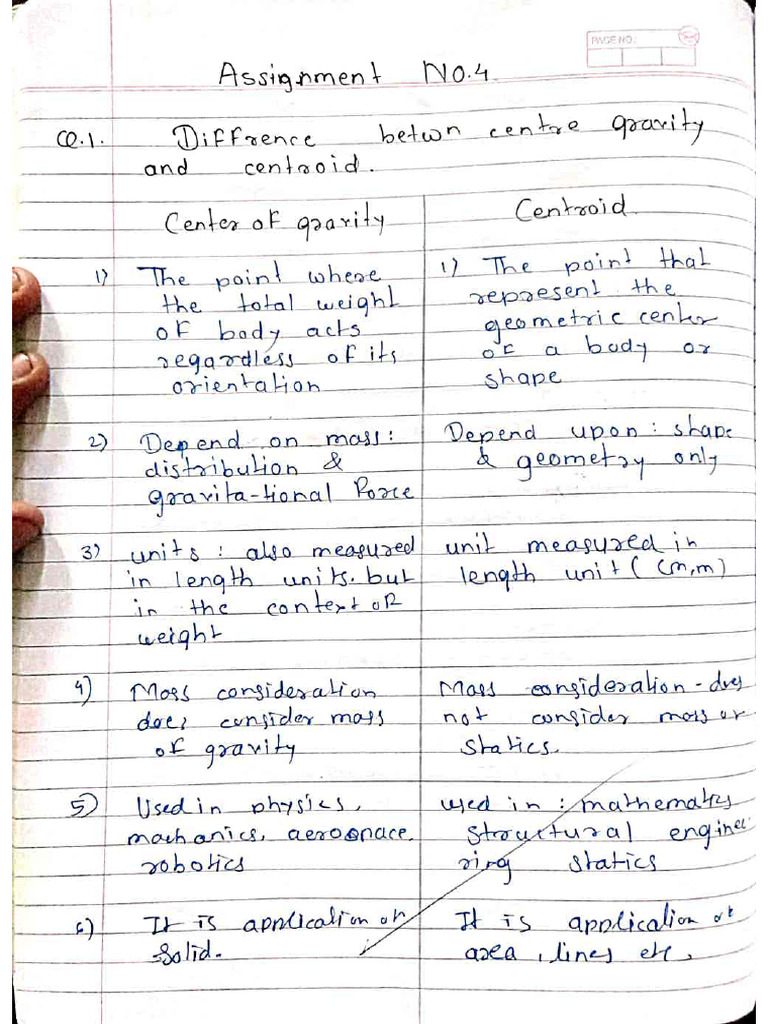 PAGE NO.:
Assignment No.4
Q.1. Diffrence betwn centre gravity
and centroid.
Center of gravity
1) The point where
the total weight
of body acts
regardless of its
orientation
2) Depend on mass:
distribution &
gravita-tional Force
3) units: also measured
in length units. but
in the context of
weight
4) Mass consideration
does consider mass
of gravity
5) Used in physics,
machanics, aerospace
robotics
6) It is application of
Solid.
Centroid
1) The point that
represent the
geometric center
of a body or
shape
Depend upon: shape
& geometry only
unit measured in
length unit (cm,m)
Mass consideration-does
not consider mass or
statics.
used in: mathematics
structural enginee
ring statics
It is application of
area, lines etc,